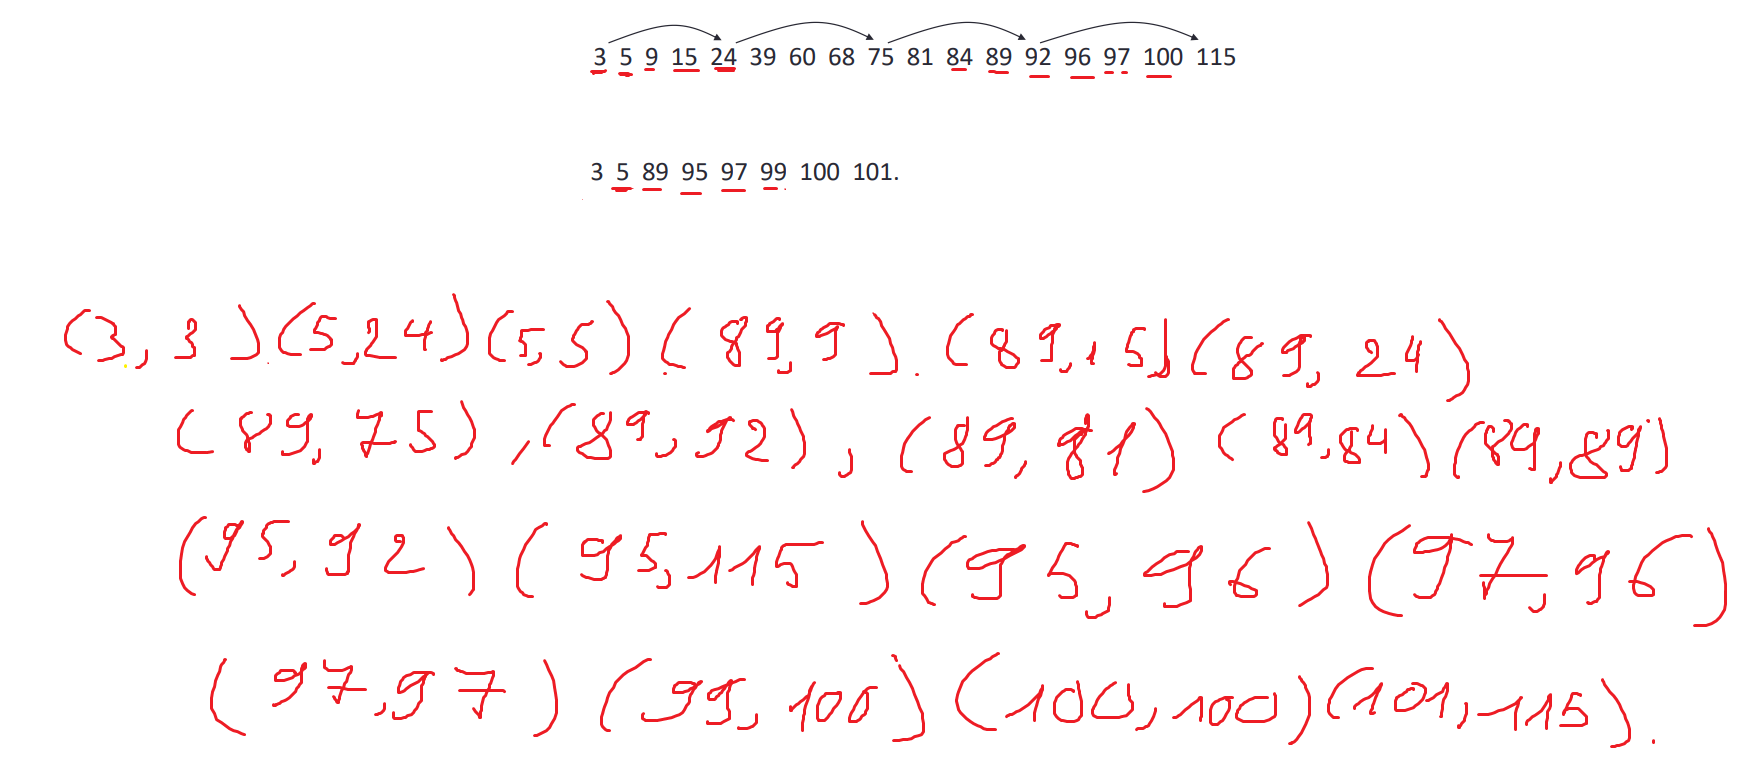 3 5 9 15 24 39 60 68 75 81 84 89 92 96 97 100 115
3 5 89 95 97 99 100 101.
(3, 3) (5,24) (5,5) (89,9). (89,15) (89, 24)
(89,75), (89,92), (89,81) (89,84) (89,89)
(95,92) (95,115) (95,96) (97,96)
(97,97) (99,100) (100,100) (101,115).